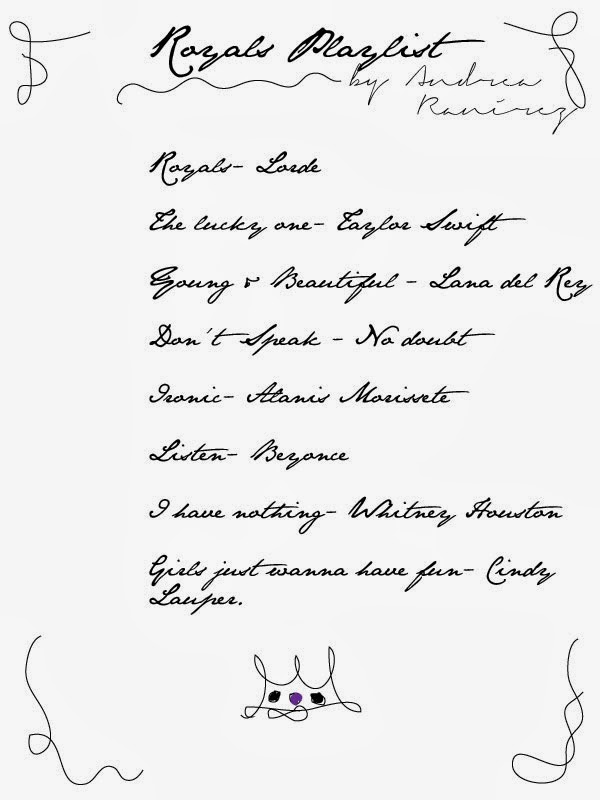 Royals Playlist
by Andrea
Ramírez
Royals- Lorde
The lucky one- Taylor Swift
Young & Beautiful - Lana del Rey
Don't Speak - No doubt
Ironic- Alanis Morissete
Listen- Beyonce
I have nothing- Whitney Houston
Girls just wanna have fun- Cindy
Lauper.